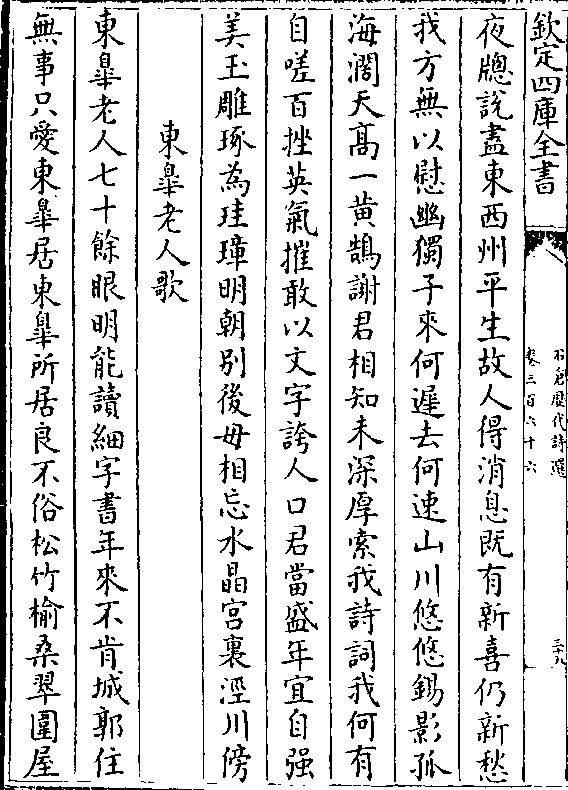 欽定四庫全書
石倉歷代詩選
卷三百六十六
三十九
夜牕說盡東西州平生故人得消息既有新喜仍新愁
我方無以慰幽獨子來何遲去何速山川悠悠錫影孤
海濶天髙一黄鵠謝君相知未深厚索我詩詞我何有
自嗟百挫英氣摧敢以文字誇人口君當盛年宜自强
美玉雕琢為珪璋明朝别後毋相忘水晶宫裏涇川傍
東臯老人歌
東臯老人七十餘眼明能讀細字書年來不肯城郭住
無事只愛東臯居東臯所居良不俗松竹榆桑翠圍屋